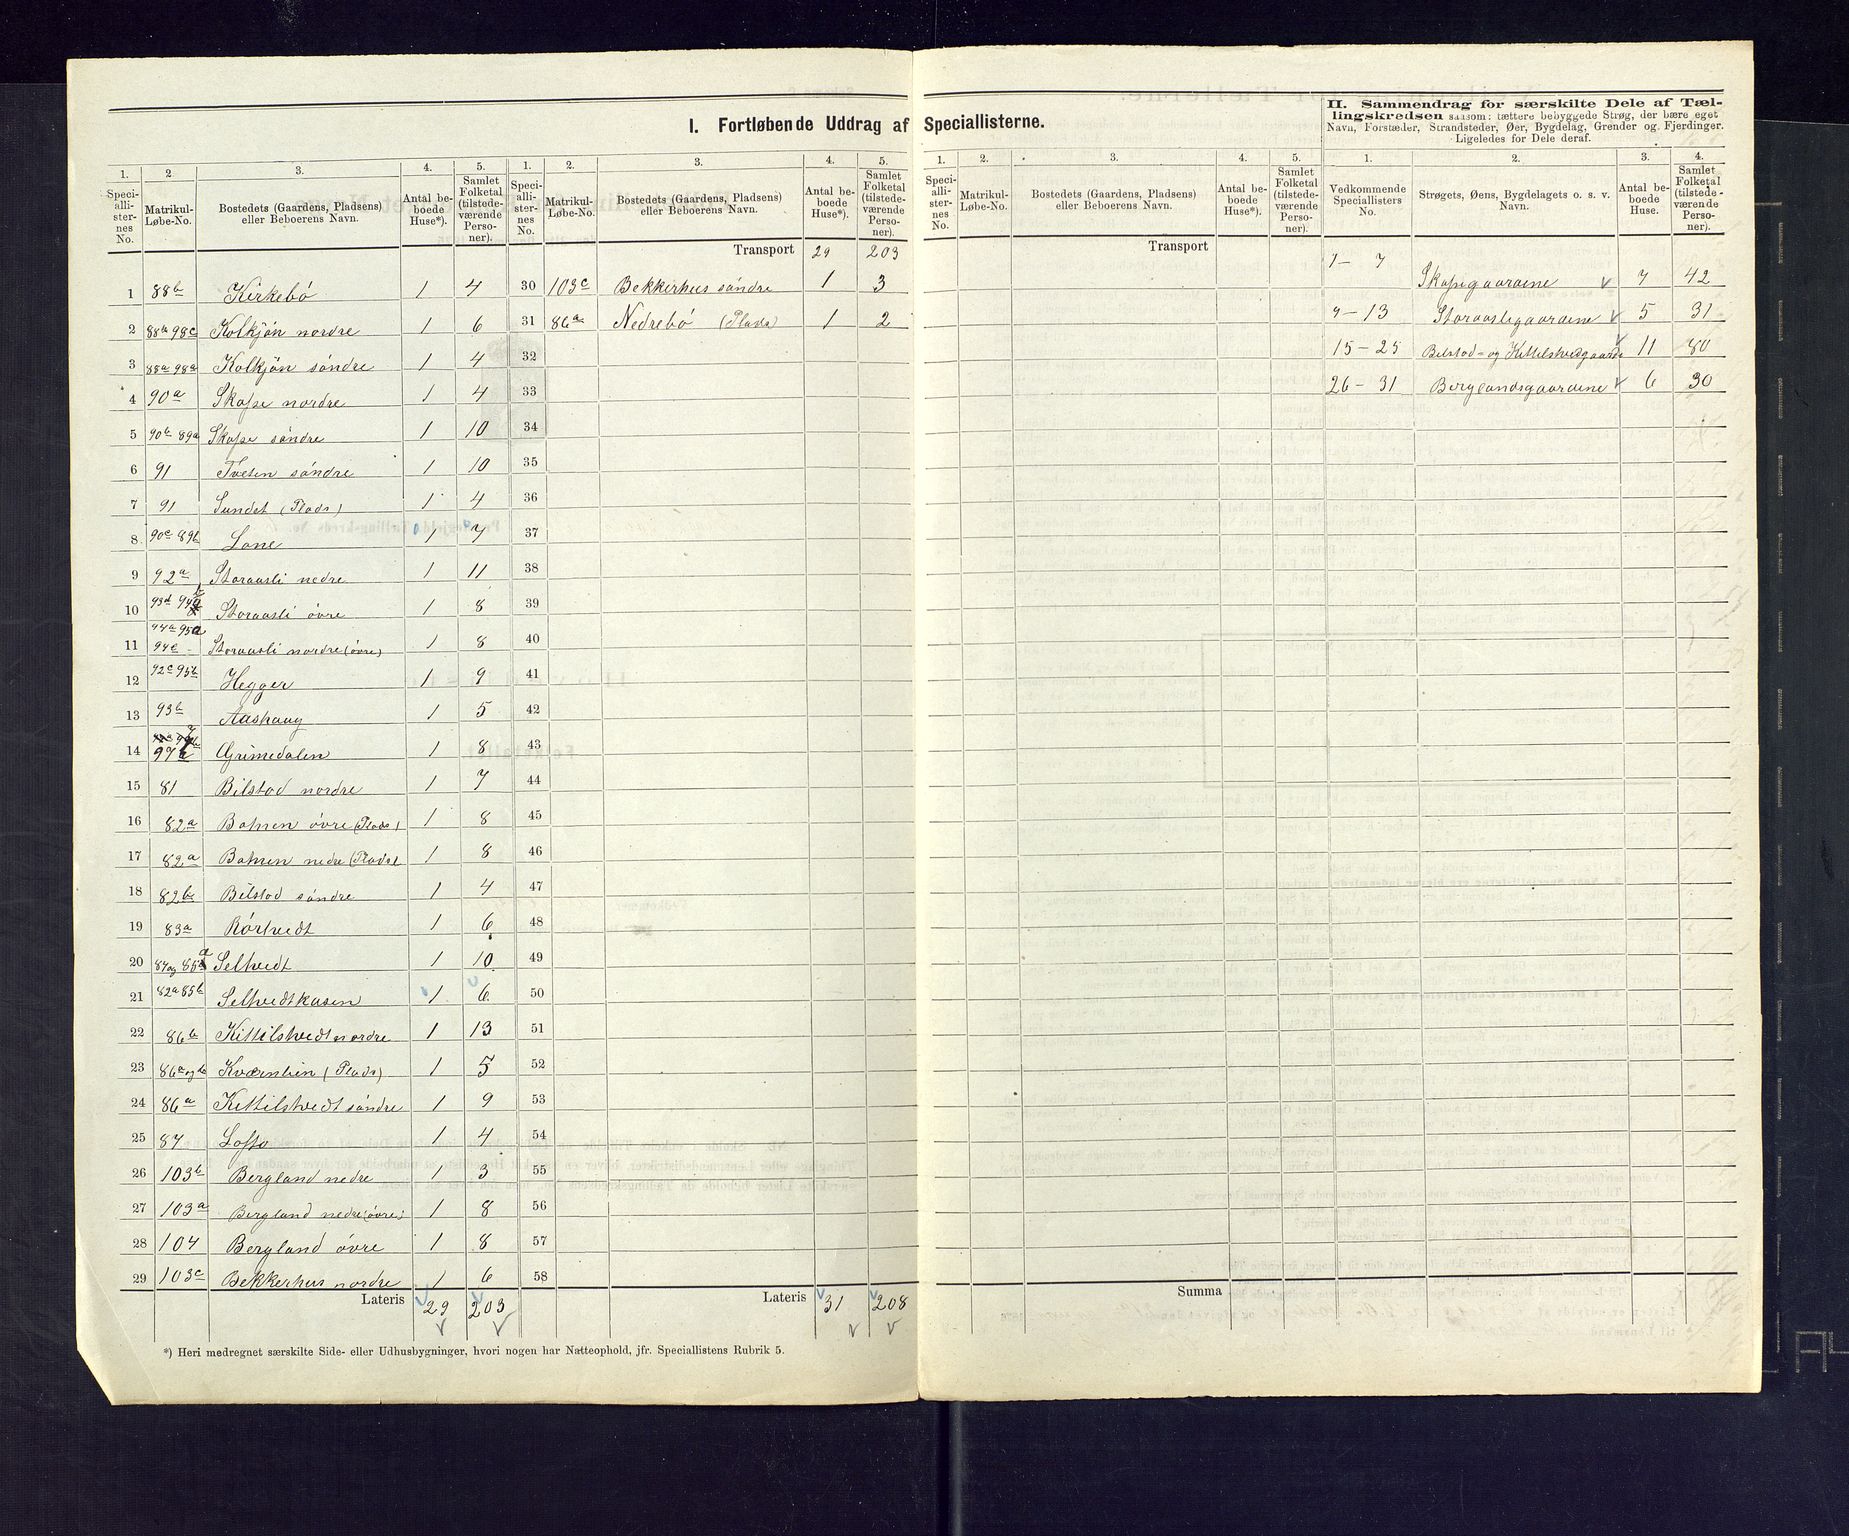 I. Fortløbende Uddrag af Speciallisterne.
II. Sammendrag for særskilte Dele af Tællingskredsen saasom: tættere bebyggede Strøg, der bære eget
Navn, Forstæder, Strandsteder, Øer, Bygdelag, Grender og Fjerdinger.
Ligeledes for Dele deraf.
1. 2 3. 4. 5. 1. 2. 3. 4. 5.
Speciallisternes No. Matrikul-Løbe-No. Bostedets (Gaardens, Pladsens) eller Beboerens Navn. Antal beboede Huse*). Samlet Folketal (tilstedeværende Personer).
Speciallisternes No. Matrikul-Løbe-No. Bostedets (Gaardens, Pladsens) eller Beboerens Navn. Antal beboede Huse*). Samlet Folketal (tilstedeværende Personer).
1 88b Kirkebö 1 4
2 88a 98c Kolkjön nordre 1 6
3 88a 98a Kolkjön söndre 1 4
4 90a Skofse nordre 1 4
5 90b 89a Skofse söndre 1 10
6 91 Tveten söndre 1 10
7 91 Sundet (Plads) 1 4
8 90c 89b Lone 1 7
9 92a Storaasli nedre 1 11
10 93d Storaasli övre 1 8
11 94a 95a
94c Storaasli nordre (övre) 1 8
12 92c 95b Hegger 1 9
13 93b Aashaug 1 5
14 Grimedalen 1 8
15 81 Bilstad nordre 1 7
16 82a Bakken övre (Plads) 1 8
17 82a Bakken nedre (Plads) 1 8
18 82b Bilstad söndre 1 4
19 83a Rörtvedt 1 6
20 84 og 85a Seltvedt 1 10
21 82a 85b Seltvedtkasen 1 6
22 86b Kittilstvedt nordre 1 13
23 86a og b Kværnlien (Plads) 1 5
24 86a Kittilstvedt söndre 1 9
25 87 Lofto 1 4
26 103b Bergland nedre 1 3
27 103a Bergland nedre (övre) 1 8
28 104 Bergland övre 1 8
29 103c Bekkerhus nordre 1 6
Lateris 29 203
Transport 29 203
30 103c Bekkerhus söndre 1 3
31 86a Nedrebö (Plads) 1 2
32
33
34
35
36
37
38
39
40
41
42
43
44
45
46
47
48
49
50
51
52
53
54
55
56
57
58
Lateris 31 208
*) Heri medregnet særskilte Side- eller Udhusbygninger, hvori nogen har Natteophold, jfr. Speciallistens Rubrik 5.
1. 2. 3. 4. 5.
Speciallisternes No. Matrikul-Løbe-No. Bostedets (Gaardens, Pladsens) eller Beboerens Navn. Antal beboede Huse*). Samlet Folketal (tilstedeværende Personer).
Transport
Summa
1. 2. 3. 4.
Vedkommende Speciallisters No. Strøgets, Øens, Bygdelagets o. s. v. Navn. Antal beboede Huse. Samlet Folketal (tilstedeværende Personer).
1 – 7 Skofsegaardene 7 42
9 – 13 Storaasligaardene 5 31
15 – 25 Bilstad- og Kittilstvedgaarde 11 80
26 – 31 Berglandsgaardene 6 30